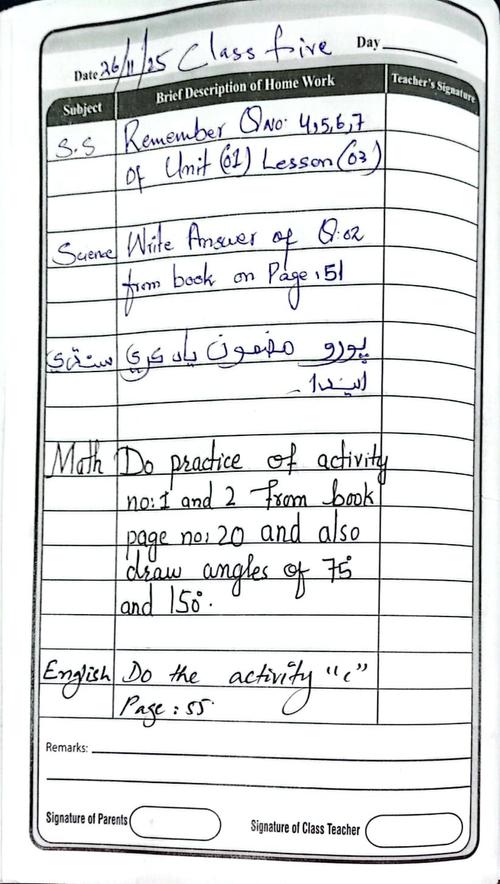 Date 26/11/25 Class five Day
Subject Brief Description of Home Work Teacher's Signature
S.S Remember Q No: 4,5,6,7
of Unit (01) Lesson (03)
Science Write Answer of Q.02
from book on Page: 51
سنڌي پورو مضمون ياد ڪري
ايندا۔
Math Do practice of activity
no: 1 and 2 from book
page no: 20 and also
draw angles of 75°
and 150°.
English Do the activity "c"
Page: 55
Remarks:
Signature of Parents Signature of Class Teacher